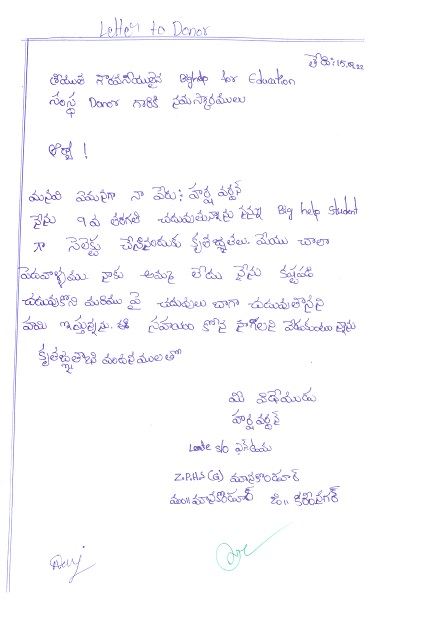 Letter to Donor
తేది: 15.09.22
శ్రీయుత గౌరవనీయులైన Bighelp for Education
సంస్థ Donor గారికి నమస్కారములు
ఆర్యా !
మనవి ఏమనగా నా పేరు: హర్ష వర్ధన్
నేను 9వ తరగతి చదువుతున్నాను నన్ను Big help student
గా సెలెక్టు చేసినందుకు కృతజ్ఞతలు. మేము చాలా
పేదవాళ్ళము నాకు అమ్మ లేదు నేను కష్టపడి
చదువుకొని మరియు పై చదువులు బాగా చదువుతానని
హామి ఇస్తున్నాను. ఈ సహాయం కొన సాగాలని వేడుకుంటున్నాను
కృతజ్ఞతాభి వందనములతో
మి విధేయుడు
హర్ష వర్ధన్
s/o
Z.P.H.S (G) మానకొండూర్
మం॥ మానకొండూర్ జి॥ కరీంనగర్